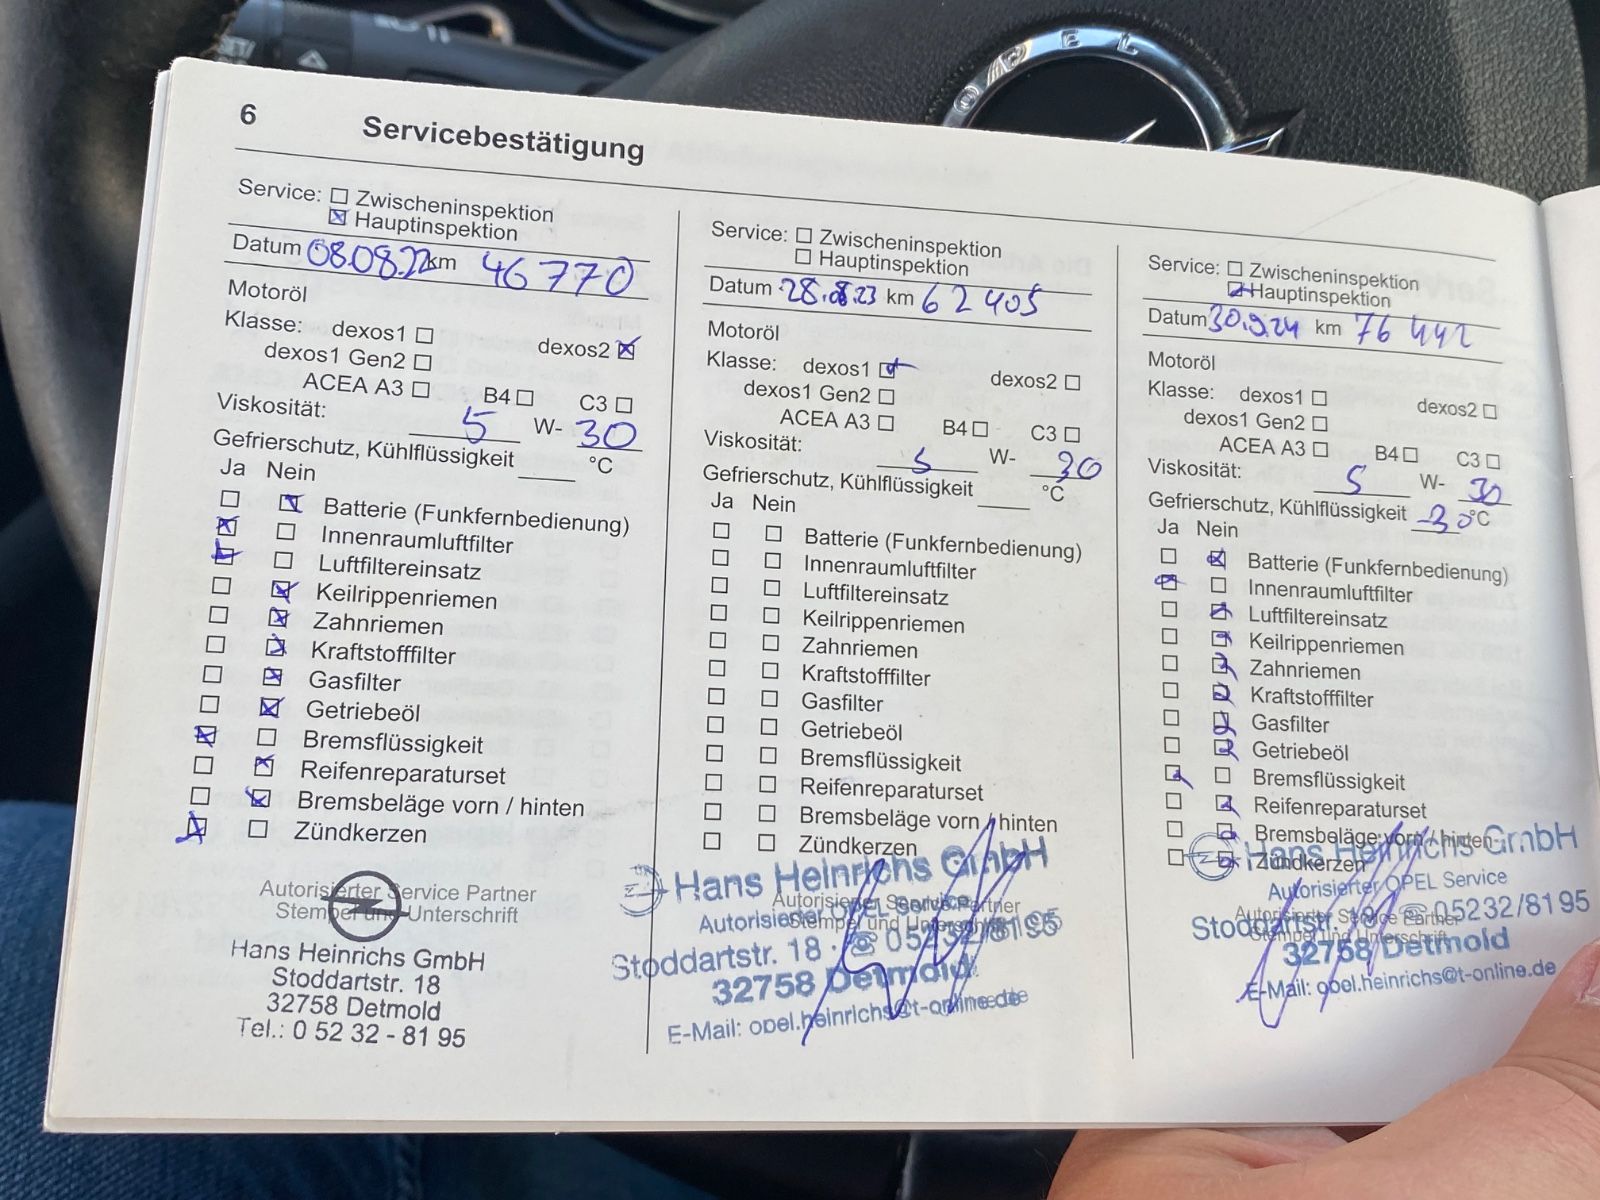 OPEL
6 Servicebestätigung
Service: ☐ Zwischeninspektion
☒ Hauptinspektion
Datum 08.08.22 km 46770
Motoröl
Klasse: dexos1 ☐ dexos2 ☒
dexos1 Gen2 ☐
ACEA A3 ☐ B4 ☐ C3 ☐
Viskosität: 5 W- 30
Gefrierschutz, Kühlflüssigkeit ____ °C
Ja Nein
☐ ☒ Batterie (Funkfernbedienung)
☒ ☐ Innenraumluftfilter
☒ ☐ Luftfiltereinsatz
☐ ☒ Keilrippenriemen
☐ ☒ Zahnriemen
☐ ☒ Kraftstofffilter
☐ ☒ Gasfilter
☐ ☒ Getriebeöl
☒ ☐ Bremsflüssigkeit
☐ ☒ Reifenreparaturset
☐ ☒ Bremsbeläge vorn / hinten
☒ ☐ Zündkerzen
Autorisierter Service Partner
Stempel und Unterschrift
Hans Heinrichs GmbH
Stoddartstr. 18
32758 Detmold
Tel.: 0 52 32 - 81 95
Service: ☐ Zwischeninspektion
☐ Hauptinspektion
Datum 28.08.23 km 62405
Motoröl
Klasse: dexos1 ☒ dexos2 ☐
dexos1 Gen2 ☐
ACEA A3 ☐ B4 ☐ C3 ☐
Viskosität: 5 W- 30
Gefrierschutz, Kühlflüssigkeit ____ °C
Ja Nein
☐ ☐ Batterie (Funkfernbedienung)
☐ ☐ Innenraumluftfilter
☐ ☐ Luftfiltereinsatz
☐ ☐ Keilrippenriemen
☐ ☐ Zahnriemen
☐ ☐ Kraftstofffilter
☐ ☐ Gasfilter
☐ ☐ Getriebeöl
☐ ☐ Bremsflüssigkeit
☐ ☐ Reifenreparaturset
☐ ☐ Bremsbeläge vorn / hinten
☐ ☐ Zündkerzen
Hans Heinrichs GmbH
Autorisierter Service Partner
Autorisierter OPEL Service
Stempel und Unterschrift
Stoddartstr. 18 · ☏ 05232/8195
32758 Detmold
E-Mail: opel.heinrichs@t-online.de
Service: ☐ Zwischeninspektion
☒ Hauptinspektion
Datum 30.9.24 km 76442
Motoröl
Klasse: dexos1 ☐ dexos2 ☐
dexos1 Gen2 ☐
ACEA A3 ☐ B4 ☐ C3 ☐
Viskosität: 5 W- 30
Gefrierschutz, Kühlflüssigkeit -30 °C
Ja Nein
☐ ☒ Batterie (Funkfernbedienung)
☒ ☐ Innenraumluftfilter
☐ ☒ Luftfiltereinsatz
☐ ☒ Keilrippenriemen
☐ ☒ Zahnriemen
☐ ☒ Kraftstofffilter
☐ ☒ Gasfilter
☐ ☒ Getriebeöl
☒ ☐ Bremsflüssigkeit
☐ ☒ Reifenreparaturset
☐ ☒ Bremsbeläge vorn / hinten
☐ ☒ Zündkerzen
Hans Heinrichs GmbH
Autorisierter OPEL Service
Autorisierter Service Partner
Stoddartstr. 18 · ☏ 05232/8195
Stempel und Unterschrift
32758 Detmold
E-Mail: opel.heinrichs@t-online.de